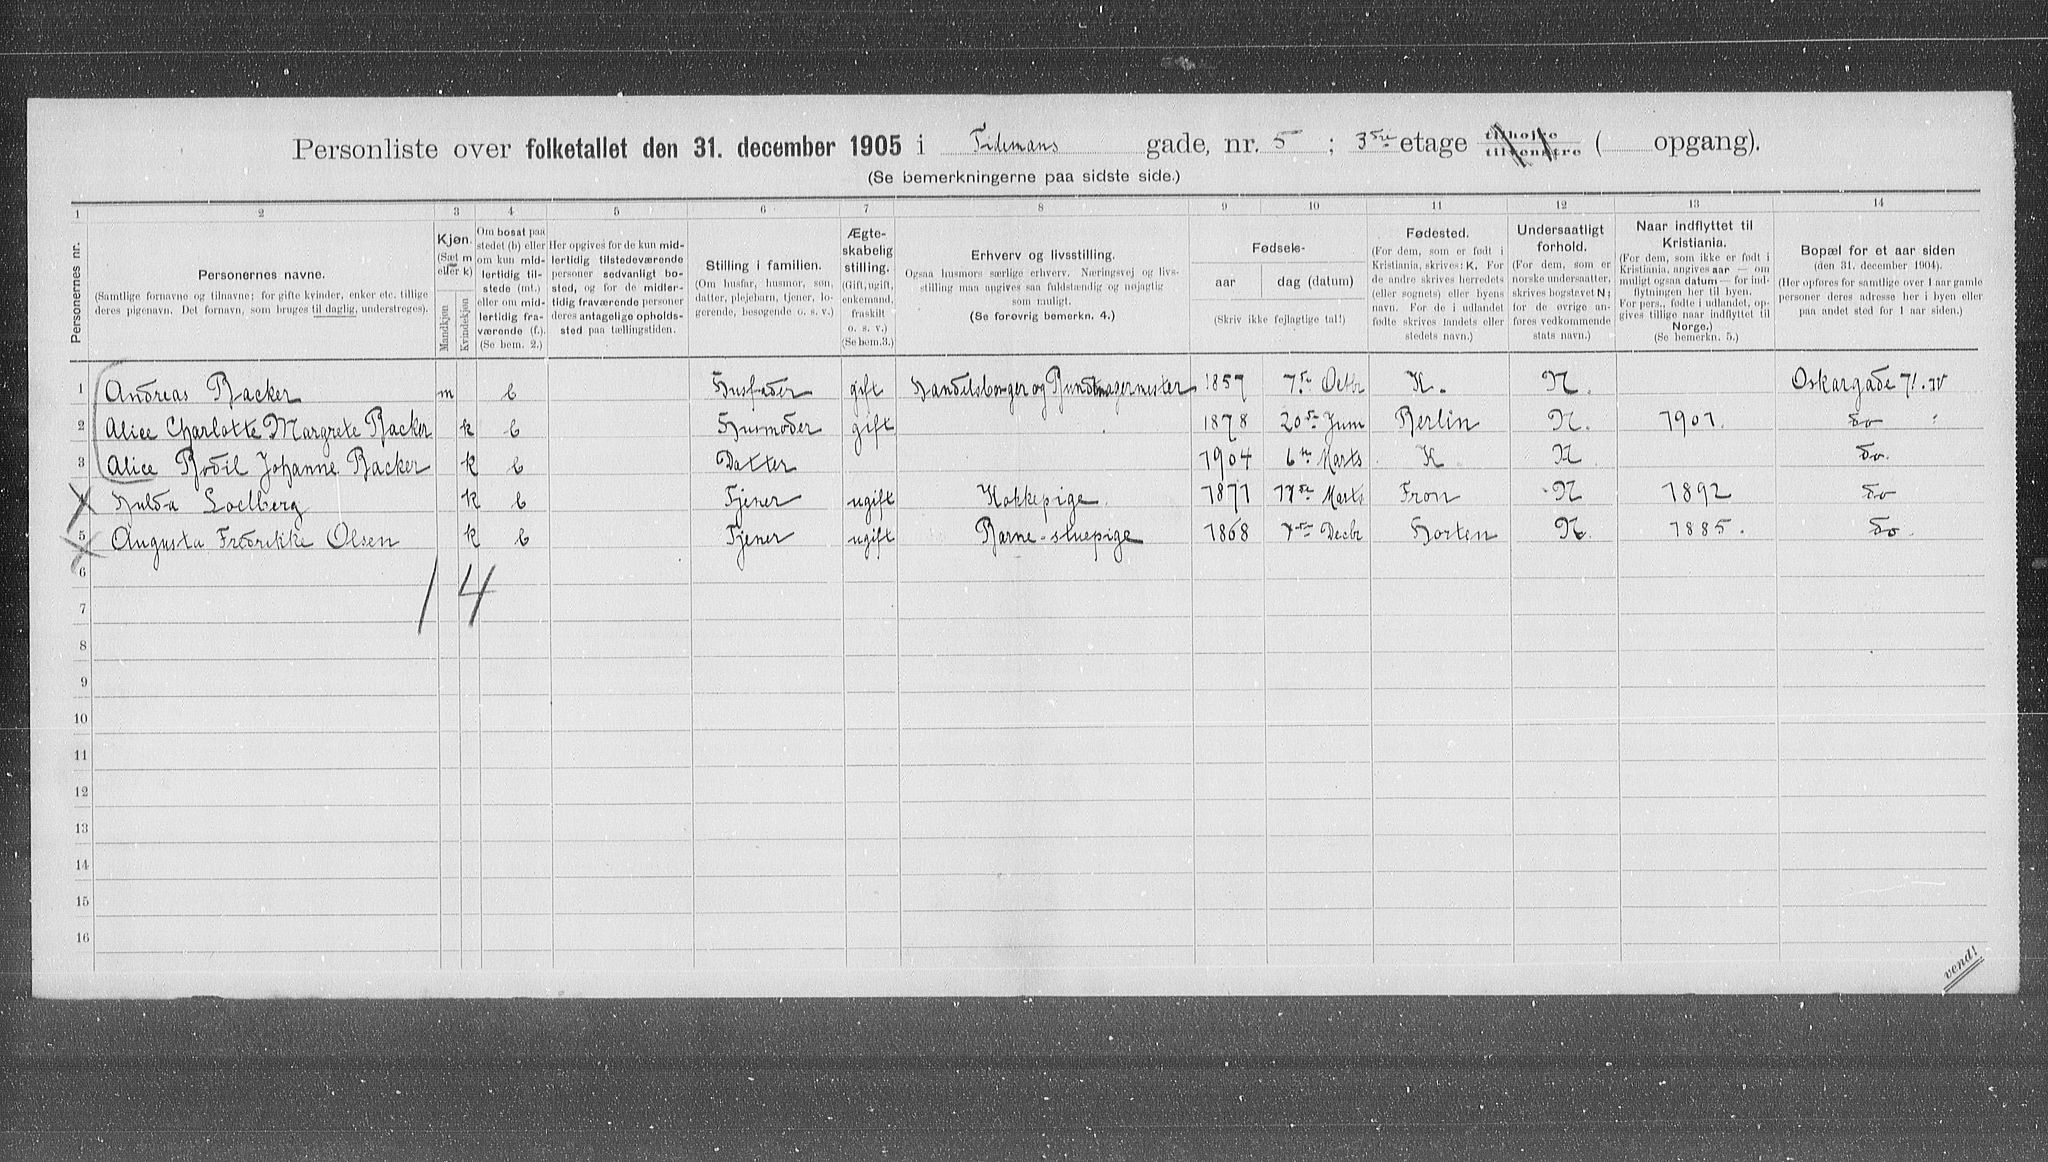 Personliste over folketallet den 31. december 1905 i Tidemans gade, nr. 5 ; 3die etage tilhøjre tilvenstre ( opgang).
(Se bemerkningerne paa sidste side.)
1 2 3 4 5 6 7 8 9 10 11 12 13 14
Personernes nr.
Personernes navne.
(Samtlige fornavne og tilnavne; for gifte kvinder, enker etc. tillige
deres pigenavn. Det fornavn, som bruges til daglig, understreges).
Kjøn.
(Sæt m
eller k)
Mandkjøn
Kvindekjøn
Om bosat paa
stedet (b) eller
om kun mid-
lertidig til-
stede (mt.)
eller om mid-
lertidig fra-
værende (f.)
(Se bem. 2.)
Her opgives for de kun mid-
lertidig tilstedeværende
personer sedvanligt bo-
sted, og for de midler-
tidig fraværende personer
deres antagelige opholds-
sted paa tællingstiden.
Stilling i familien.
(Om husfar, husmor, søn,
datter, plejebarn, tjener, lo-
gerende, besøgende o. s. v.)
Ægte-
skabelig
stilling.
(Gift, ugift,
enkemand,
fraskilt
o. s. v.)
(Se bem.3.)
Erhverv og livsstilling.
Ogsaa husmors særlige erhverv. Næringsvej og livs-
stilling maa angives saa fuldstændig og nøjagtig
som muligt.
(Se forøvrig bemerkn. 4.)
Fødsels-
aar
dag (datum)
(Skriv ikke fejlagtige tal!)
Fødested.
(For dem, som er født i
Kristiania, skrives: K. For
de andre skrives herredets
(eller sognets) eller byens
navn. For de i udlandet
fødte skrives landets eller
stedets navn.)
Undersaatligt
forhold.
(For dem, som er
norske undersaatter,
skrives bogstevet N;
for de øvrige an-
føres vedkommende
stats navn.)
Naar indflyttet til
Kristiania.
(For dem, som ikke er født i
Kristiania, angives aar — om
muligt ogsaa datum — for ind-
flytningen her til byen.
For pers., fødte i udlandet, op-
gives tillige naar indflyttet til
Norge.)
(Se bemerkn. 5.)
Bopæl for et aar siden
(den 31. december 1904).
(Her opføres for samtlige over 1 aar gamle
personer deres adresse her i byen eller
paa andet sted for 1 aar siden.)
1 Andreas Backer m b Husfader gift Handelsborger og Bundtmagermester 1857 7de Octbr K. N. Oskargade 71. IV
2 Alice Charlotte Margrete Backer k b Husmoder gift 1878 20de Juni Berlin N. 1901. do
3 Alice Bodil Johanne Backer k b Datter 1904 6te Marts K N do.
Hulda Loelberg k b Tjener ugift Kokkepige. 1871 17de Marts Fron N 1892 do
5 Augusta Fredrikke Olsen k b Tjener ugift Barne-stuepige 1868 7de Decbr Horten N. 1885. do.
6
1 4
7
8
9
10
11
12
13
14
15
16
vend!